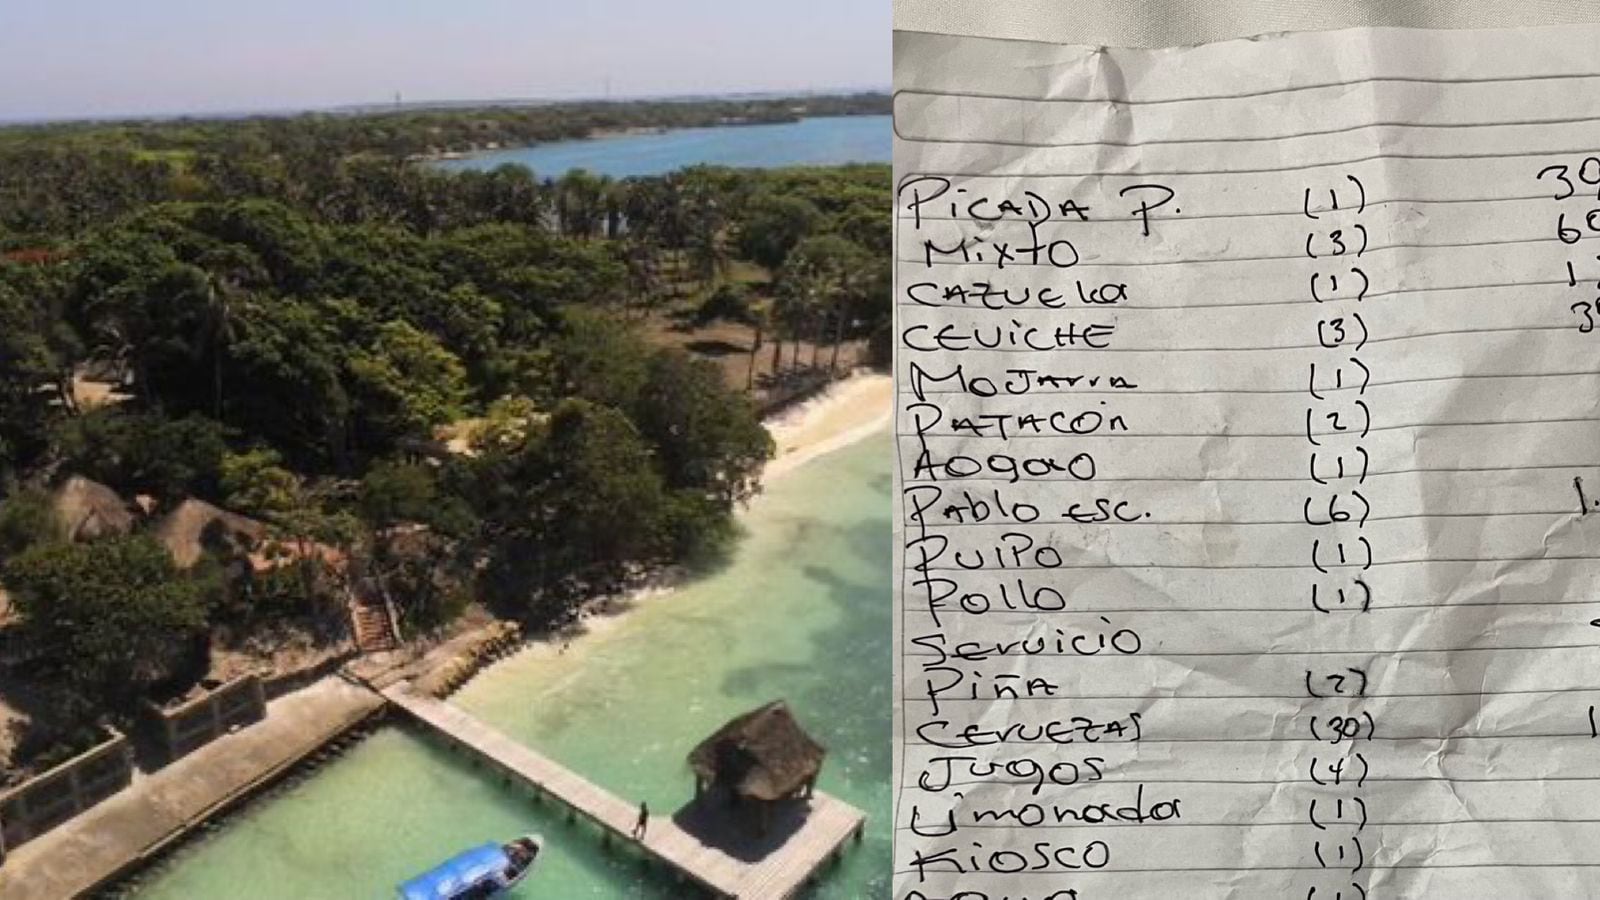 PiCADA P. (1) 39
Mixto (3) 60
CAZUEla (1) 1
CEUiCHE (3) 3
MOJArrA (1)
PATACÓn (2)
AOgao (1)
PAblo Esc. (6) 1.
PUlPO (1)
Pollo (1)
Servicio
PiñA (2)
CErvEZAS (30) 1
Jugos (4)
Limonada (1)
Kiosco (1)
(1)